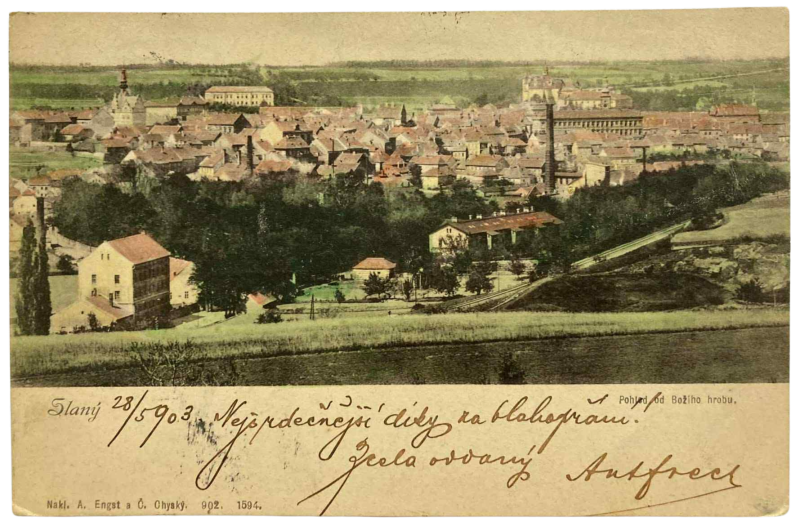 Slaný
Pohled od Božího hrobu.
28/5 903 Nejsrdečnější díky za blahopřání.
Zcela oddaný
Nakl. A. Engst a Č. Ohyský. 902. 1594.